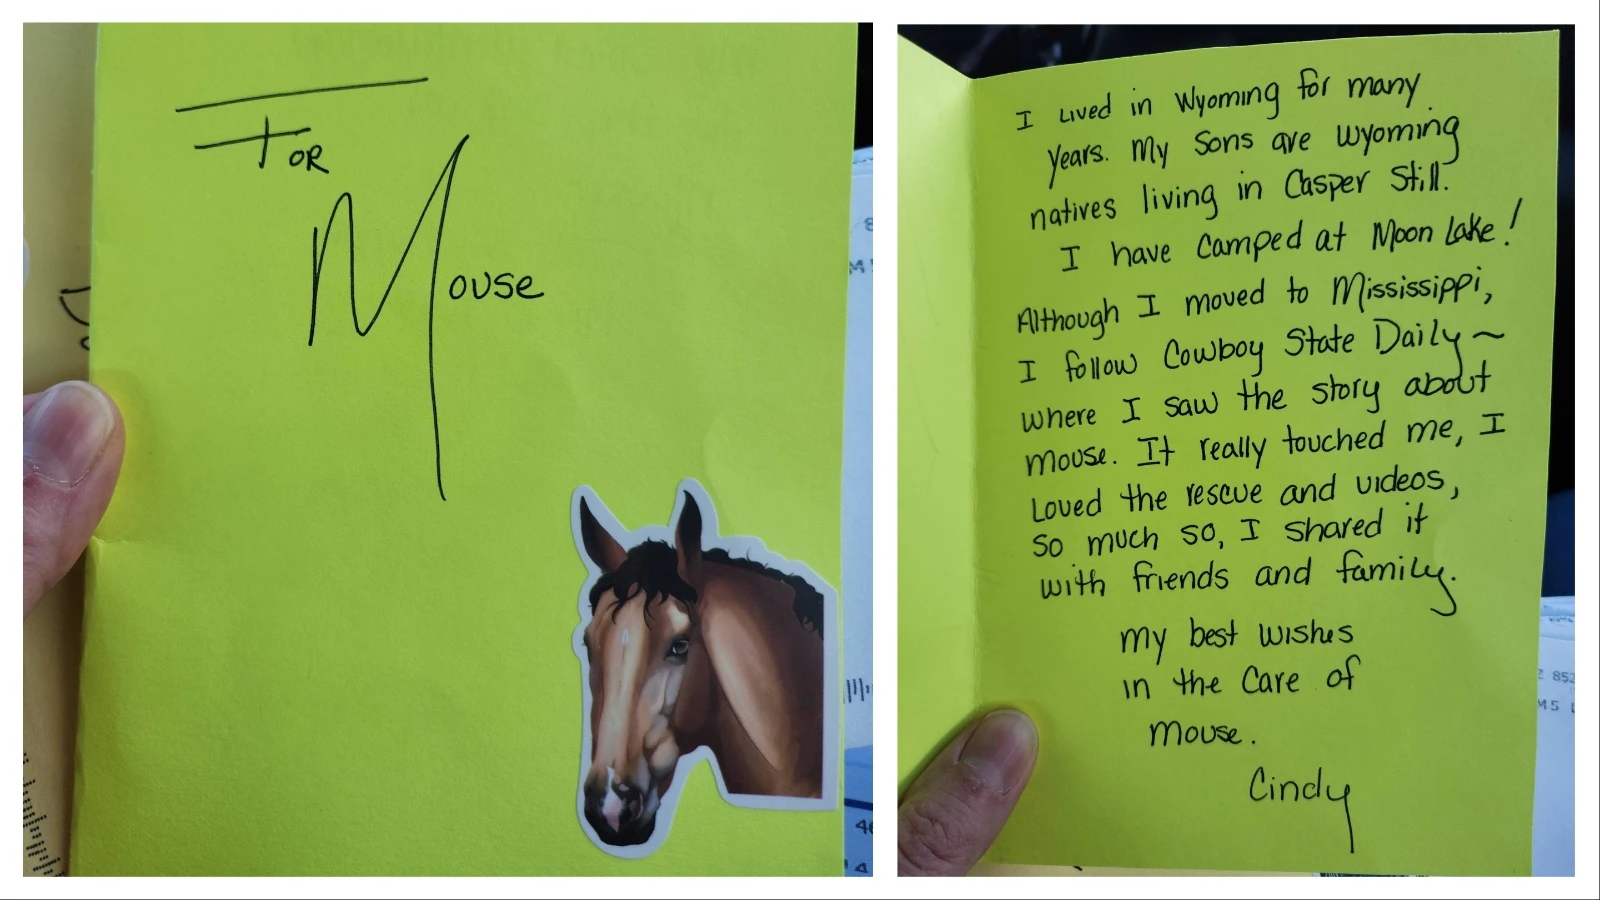 For
Mouse
I Lived in Wyoming for many
years. My Sons are Wyoming
natives living in Casper Still.
I have Camped at Moon Lake!
Although I moved to Mississippi,
I follow Cowboy State Daily ~
where I saw the story about
mouse. It really touched me, I
Loved the rescue and videos,
so much so, I shared it
with friends and family.
my best wishes
in the Care of
mouse.
Cindy